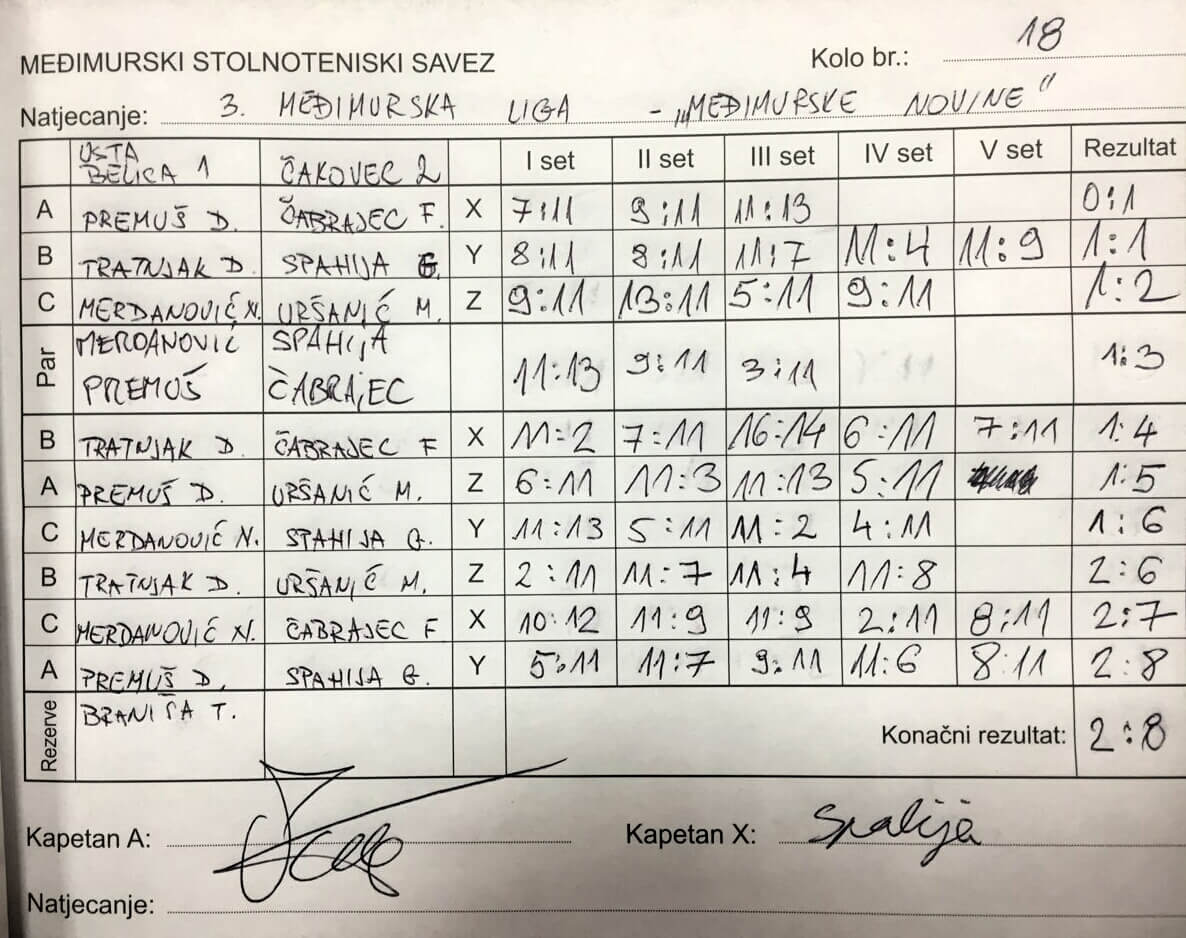 MEĐIMURSKI STOLNOTENISKI SAVEZ Kolo br.: 18
Natjecanje: 3. MEĐIMURSKA LIGA - „MEĐIMURSKE NOVINE"
USTA BELICA 1 ČAKOVEC 2 I set II set III set IV set V set Rezultat
A PREMUŠ D. ČABRAJEC F. X 7:11 9:11 11:13 0:1
B TRATNJAK D. SPAHIJA G. Y 8:11 8:11 11:7 11:4 11:9 1:1
C MERDANOVIĆ N. URŠANIĆ M. Z 9:11 13:11 5:11 9:11 1:2
Par MERDANOVIĆ SPAHIJA 11:13 9:11 3:11 1:3
PREMUŠ ČABRAJEC
B TRATNJAK D. ČABRAJEC F X 11:2 7:11 16:14 6:11 7:11 1:4
A PREMUŠ D. URŠANIĆ M. Z 6:11 11:3 11:13 5:11 1:5
C MERDANOVIĆ N. SPAHIJA G. Y 11:13 5:11 11:2 4:11 1:6
B TRATNJAK D. URŠANIĆ M. Z 2:11 11:7 11:4 11:8 2:6
C MERDANOVIĆ N. ČABRAJEC F X 10:12 11:9 11:9 2:11 8:11 2:7
A PREMUŠ D. SPAHIJA G. Y 5:11 11:7 9:11 11:6 8:11 2:8
Rezerve BRANIŠA T. Konačni rezultat: 2:8
Kapetan A: Kapetan X: Spahija
Natjecanje: